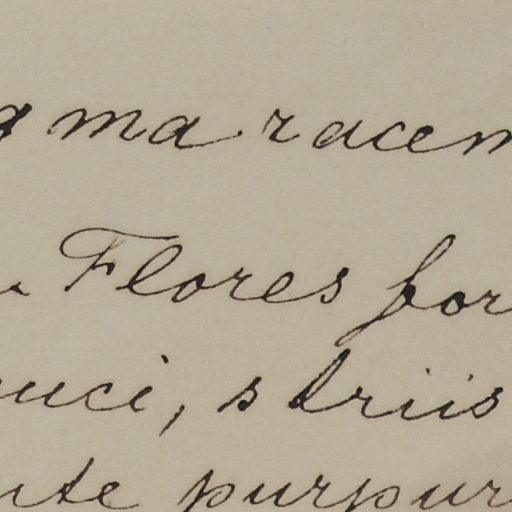 ma racem
Flores for
uci, striis
purpur